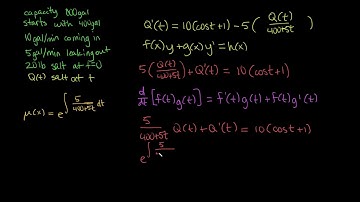 capacity 800gal
starts with 400gal
10gal/min coming in
5gal/min leaking out
20lb salt at t=0
Q(t) salt at t
μ(x) = e^∫ 5/(400+5t) dt
Q'(t) = 10(cost+1) - 5( Q(t)/(400+5t) )
f(x)y + g(x)y' = h(x)
5( Q(t)/(400+5t) ) + Q'(t) = 10(cost+1)
d/dt [f(t)g(t)] = f'(t)g(t) + f(t)g'(t)
5/(400+5t) Q(t) + Q'(t) = 10(cost+1)
e^∫ 5/